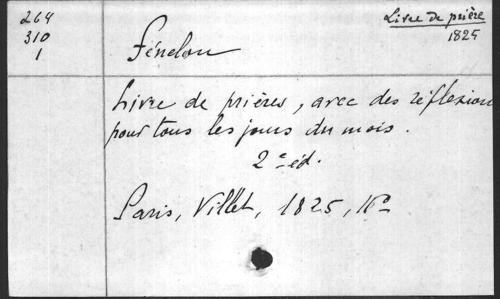 264
310
1
Livre de prière
1825
Fénelon
Livre de prières, avec des réflexions
pour tous les jours du mois.
2e éd.
Paris, Villet, 1825, 16o